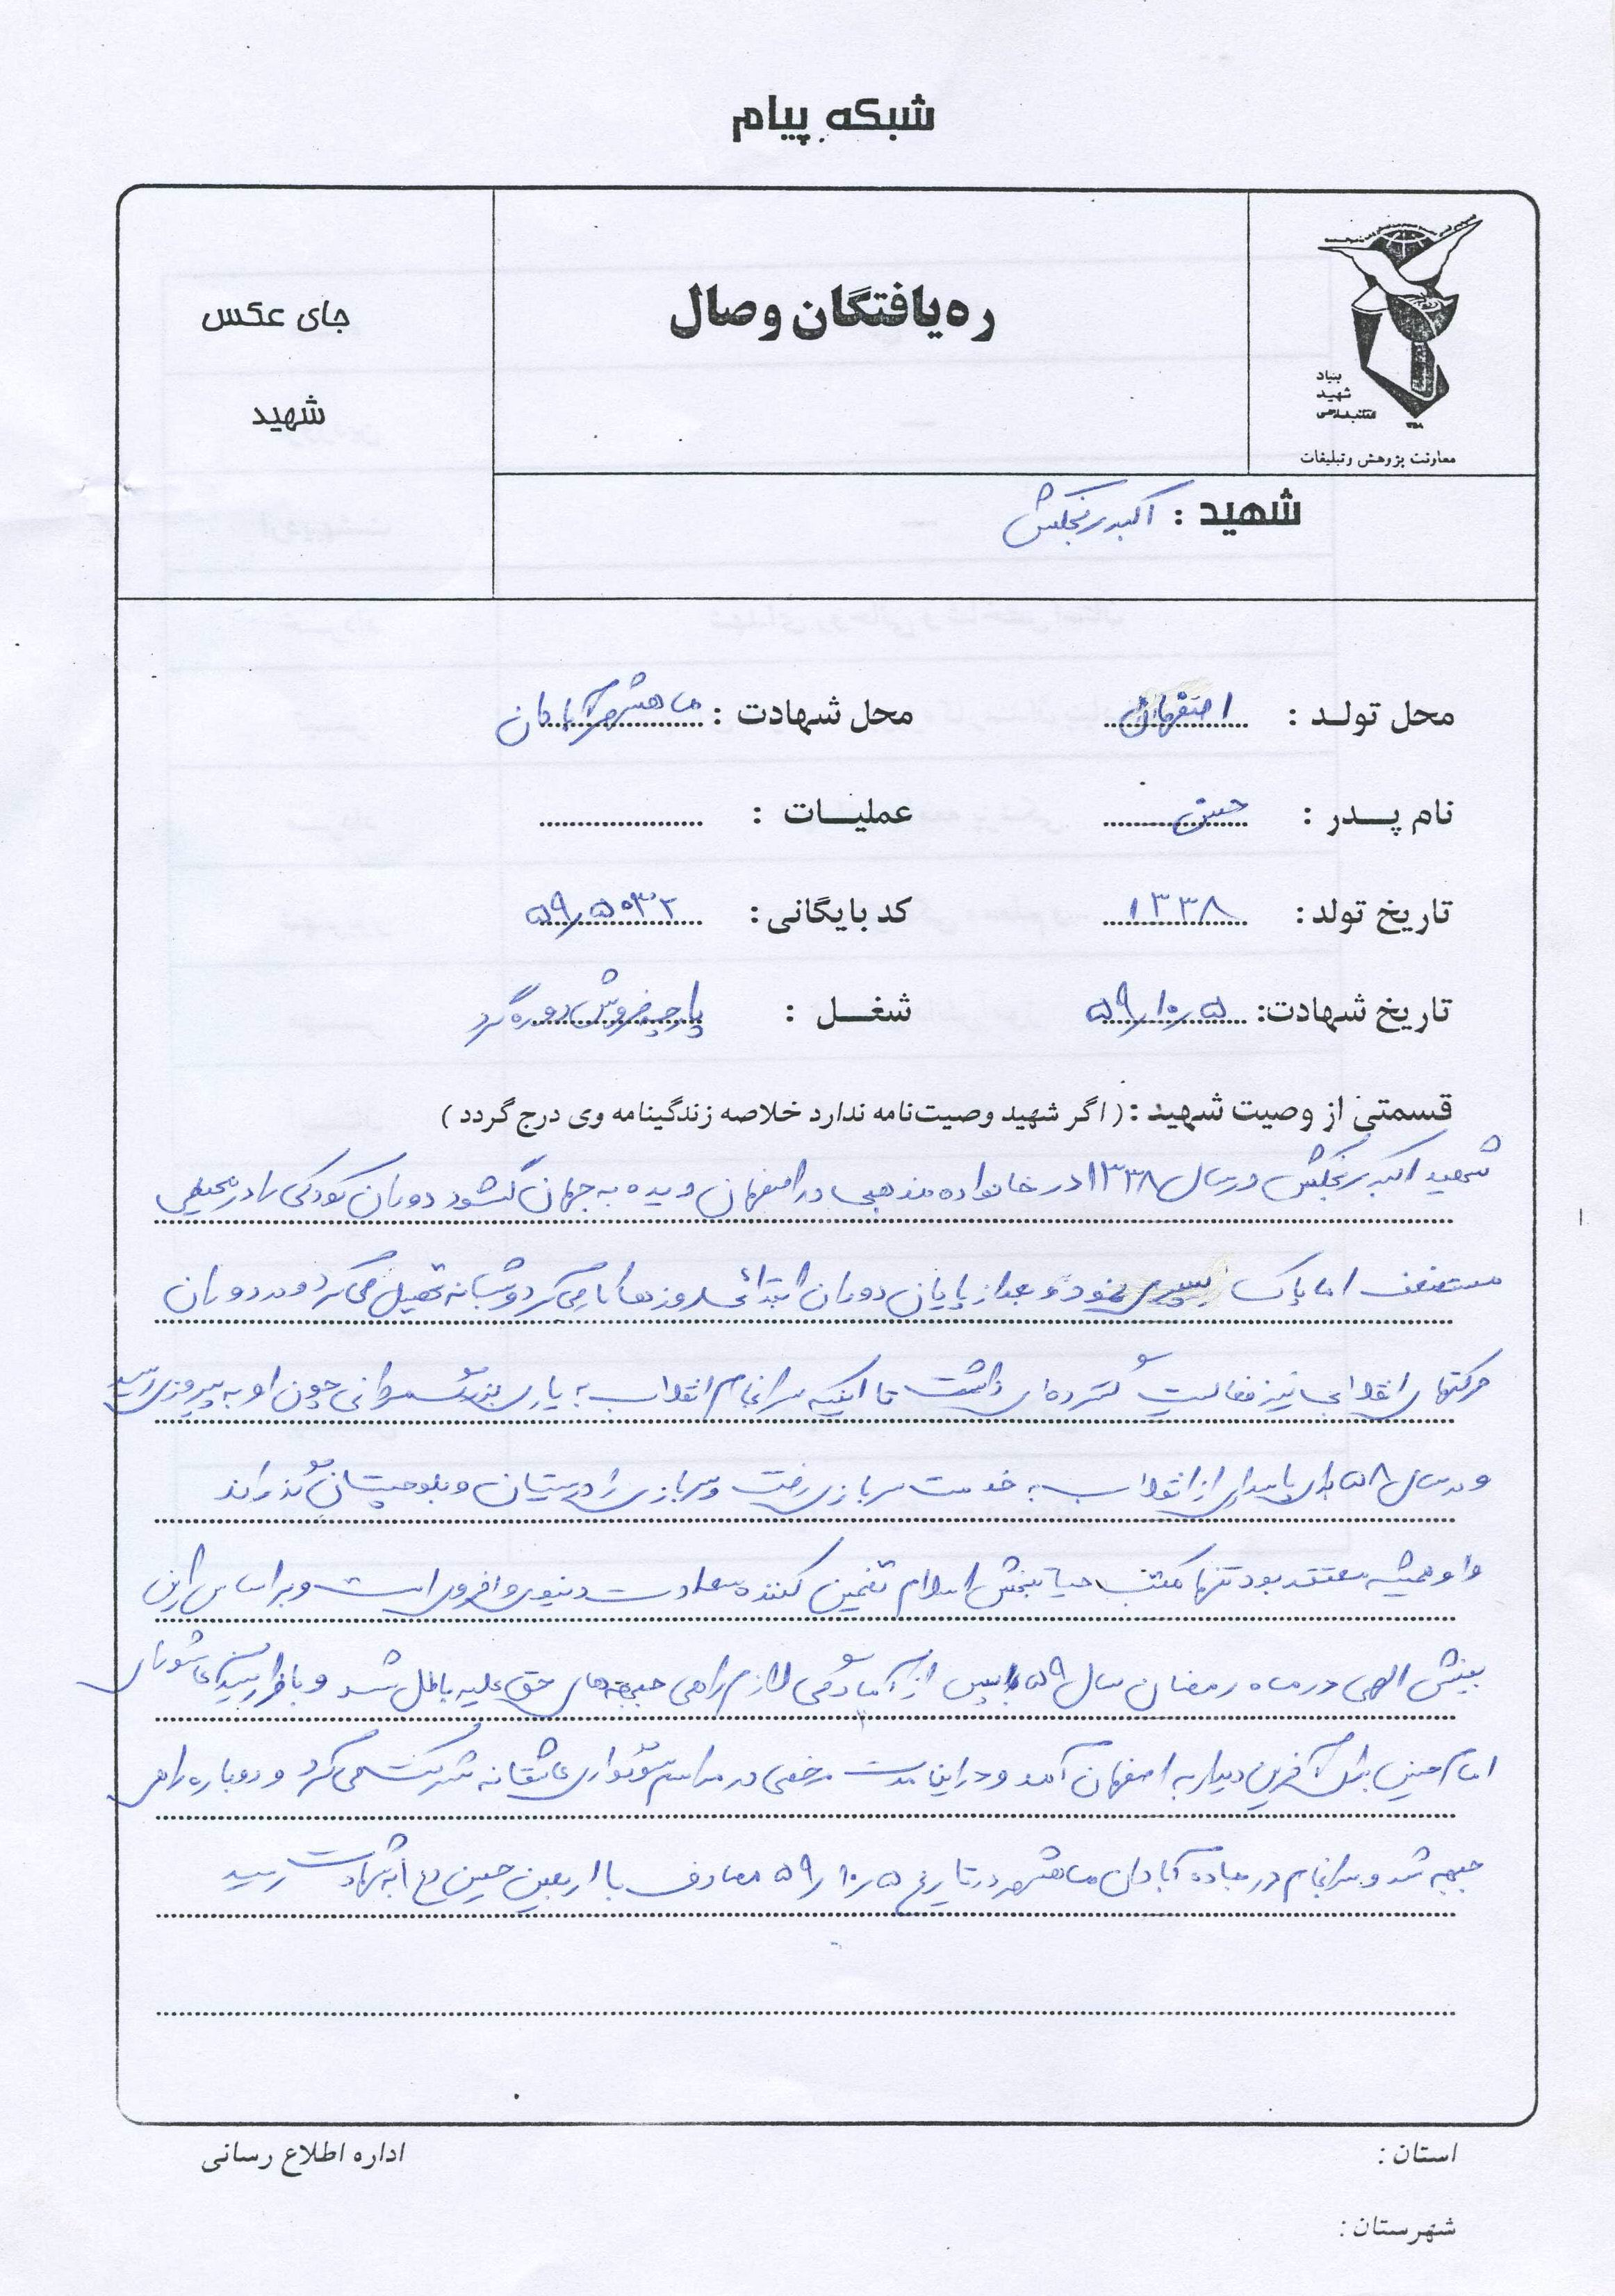 شبکه پیام
ره‌یافتگان وصال
جای عکس
شهید
بنیاد
شهید
انقلاب اسلامی
معاونت پژوهش و تبلیغات
شهید : اکبر رنجکش
محل تولد : اصفهان
محل شهادت : ماهشهر آبادان
نام پدر : حسین
عملیات :
تاریخ تولد : ۱۳۳۸
کد بایگانی : ۵۹/۵۰۳۲
تاریخ شهادت : ۵۹/۱۰/۵
شغل : پارچه فروش دوره گرد
قسمتی از وصیت شهید : ( اگر شهید وصیت‌نامه ندارد خلاصه زندگینامه وی درج گردد )
شهید اکبر رنجکش در سال ۱۳۳۸ در خانواده مذهبی در اصفهان دیده به جهان گشود دوران کودکی را در محیطی
مستضعف اما پاک سپری نمود و بعد از پایان دوران ابتدائی روزها کار می کرد و شبانه تحصیل می کرد و در دوران
حرکتهای انقلابی نیز فعالیت گسترده ای داشت تا اینکه سرانجام انقلاب به یاری چون او به پیروزی رسید
و در سال ۵۸ برای پاسداری از انقلاب به خدمت سربازی رفت و سربازی را در سیستان و بلوچستان گذراند
و او همیشه معتقد بود تنها مکتب حیاتبخش اسلام تضمین کننده سعادت دنیوی و اخروی است و بر اساس این
بینش الهی در ماه رمضان سال ۵۹ پس از آمادگی لازم راهی جبهه های حق علیه باطل شد و با فرا رسیدن عاشورای
امام حسین برای آخرین دیدار به اصفهان آمد و در این مدت مرخصی در مراسم سوگواری عاشقانه شرکت می کرد و دوباره راهی
جبهه شد و سرانجام در جاده آبادان ماهشهر در تاریخ ۵۹/۱۰/۵ مصادف با اربعین حسین (ع) به شهادت رسید
استان :
اداره اطلاع رسانی
شهرستان :